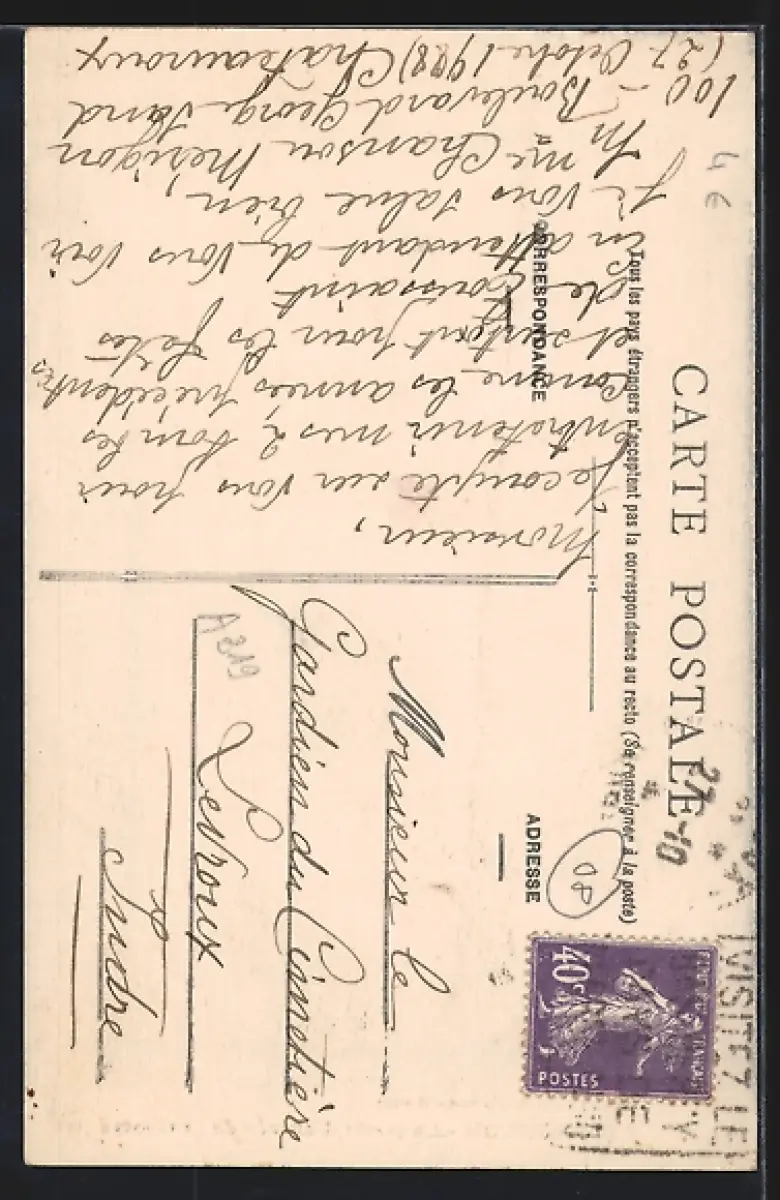 CARTE POSTALE
Tous les pays étrangers n'acceptent pas la correspondance au recto (Se renseigner à la poste)
CORRESPONDANCE
ADRESSE
Monsieur,
Je compte sur vous pour
entretenir mes 2 tombes
comme les années précédentes
et surtout pour les fêtes
de Toussaint
En attendant de vous voir
je vous salue bien
Mme Chanson Mérigon
100 - Boulevard George Sand
(27 Octobre 1928) Chateauroux
4 €
Monsieur le
Gardien du Cimetière
Levroux
Indre
A219
08
27-10
VISITEZ LE
40c
POSTES